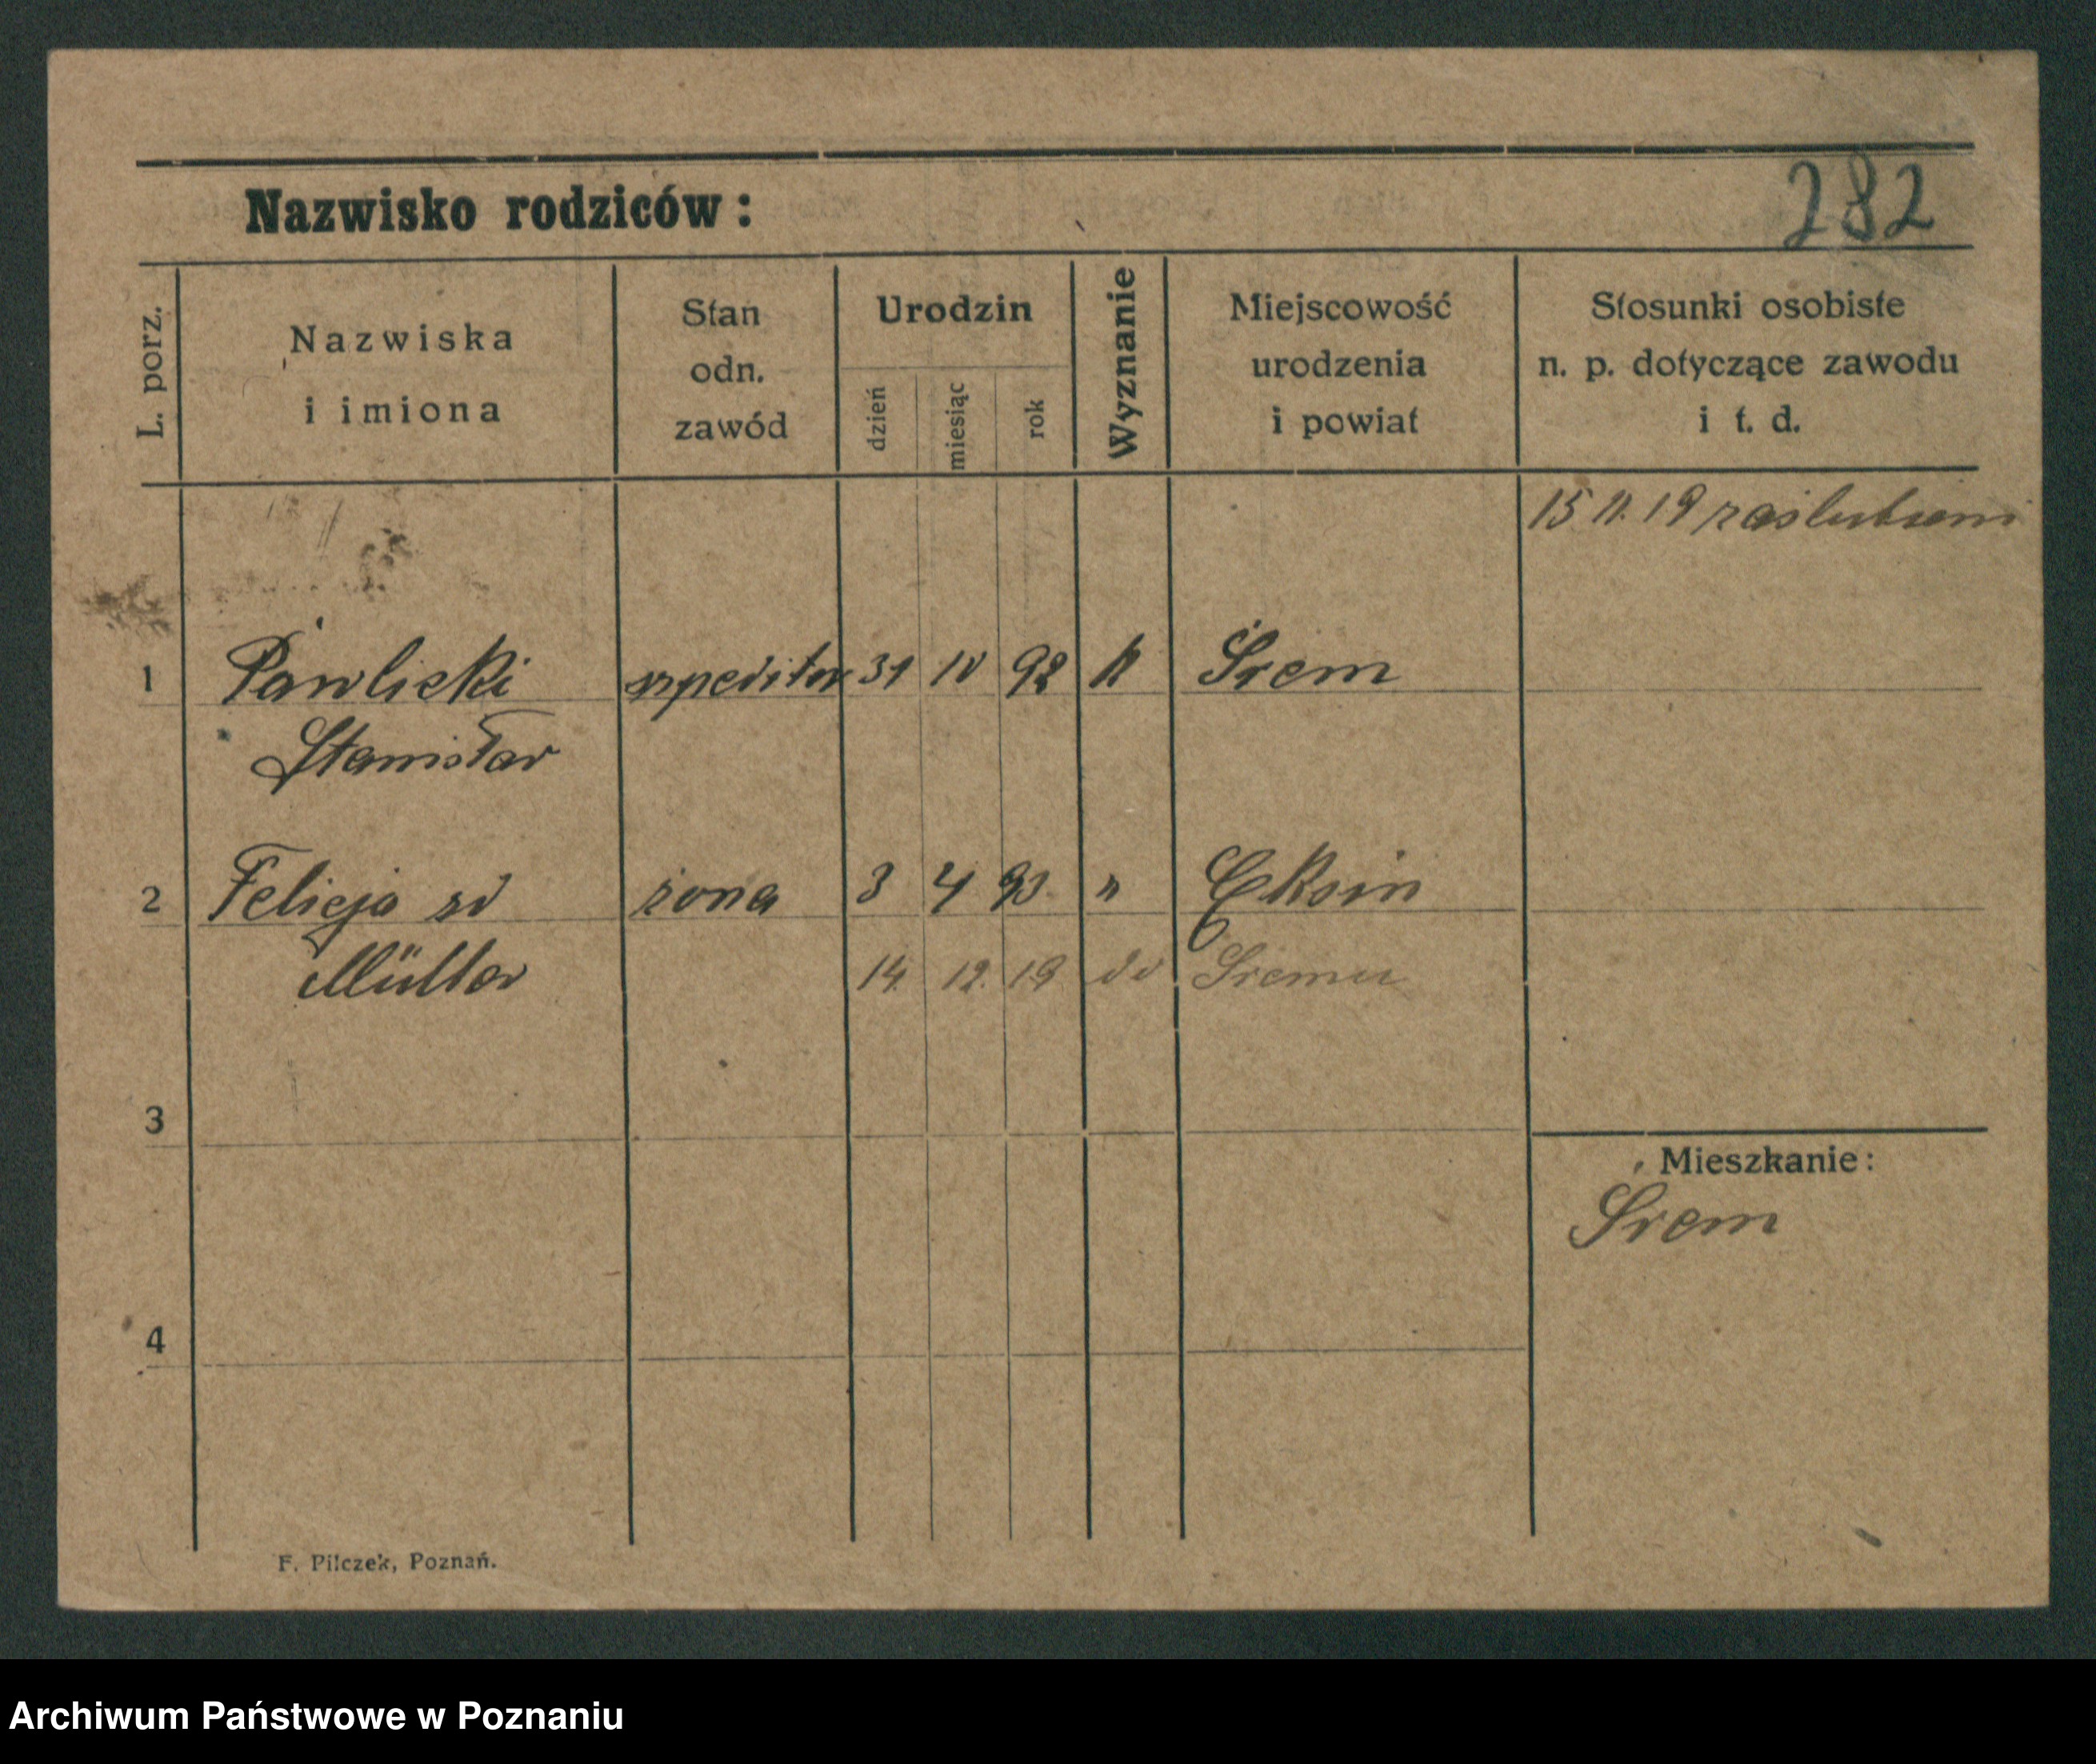 Nazwisko rodziców:
282
L. porz.
Nazwiska
i imiona
Stan
odn.
zawód
Urodzin
dzień
miesiąc
rok
Wyznanie
Miejscowość
urodzenia
i powiat
Stosunki osobiste
n. p. dotyczące zawodu
i t. d.
15 11. 19 zaślubieni
1 Pawlicki speditor 31 10 92 k Śrem
Stanisław
2 Felicja żona 3 4 93 " Eksin
Müller 14. 12. 19 do Śremu
3
Mieszkanie:
Śrem
4
F. Pilczek, Poznań.
Archiwum Państwowe w Poznaniu